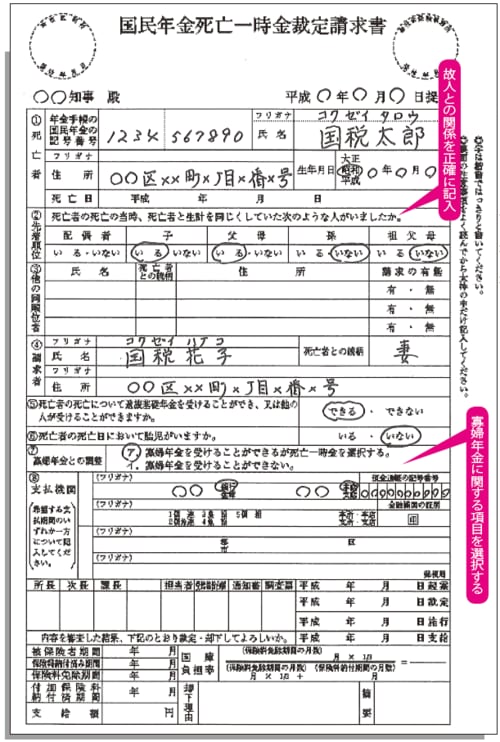 国民年金死亡一時金裁定請求書
〇〇知事 殿 平成〇年〇月〇日提
故人との関係を正確に記入
① 死亡者
年金手帳の国民年金の記号番号 1234 567890
フリガナ コクゼイ タロウ
氏名 国税太郎
フリガナ
住所 〇〇区××町×丁目×番×号
生年月日 大正 昭和 平成 〇年〇月〇日
死亡日 平成 年 月 日
② 先着順位
死亡者の死亡の当時、死亡者と生計を同じくしていた次のような人がいましたか。
配偶者 子 父母 孫 祖父母
いる・いない いる・いない いる・いない いる・いない いる・いない
③ 他の同順位者
氏名 死亡者との続柄 住所 請求の有無
有・無
有・無
有・無
④ 請求者
フリガナ コクゼイ ハナコ
氏名 国税花子 死亡者との続柄 妻
フリガナ
住所 〇〇区××町×丁目×番×号
⑤死亡者の死亡について遺族基礎年金を受けることができ、又は他の人が受けることができますか。 できる・できない
⑥死亡者の死亡日において胎児がいますか。 いる・いない
⑦ 寡婦年金との調整
ア. 寡婦年金を受けることができるが死亡一時金を選択する。
イ. 寡婦年金を受けることができない。
寡婦年金に関する項目を選択する
⑧ 支払機関
(フリガナ)
(フリガナ)
(フリガナ)
所長 次長 課長 担当者 通知書 調査票 平成 年 月 日起案
平成 年 月 日裁定
平成 年 月 日施行
平成 年 月 日支給
内容を審査した結果、下記のとおり裁定・却下してよろしいか。
被保険者期間 年 月 国庫負担率 (保険料免除期間の月数)
保険料納付済み期間 年 月 月 × 1/3
保険料免除期間 年 月 (保険料免除期間の月数) (保険料納付済期間の月数)
付加保険料納付済期間 年 月 却下理由 摘要
支給額 円